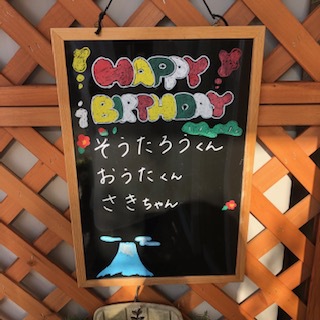 HAPPY
BIRTHDAY
そうたろうくん
おうたくん
さきちゃん